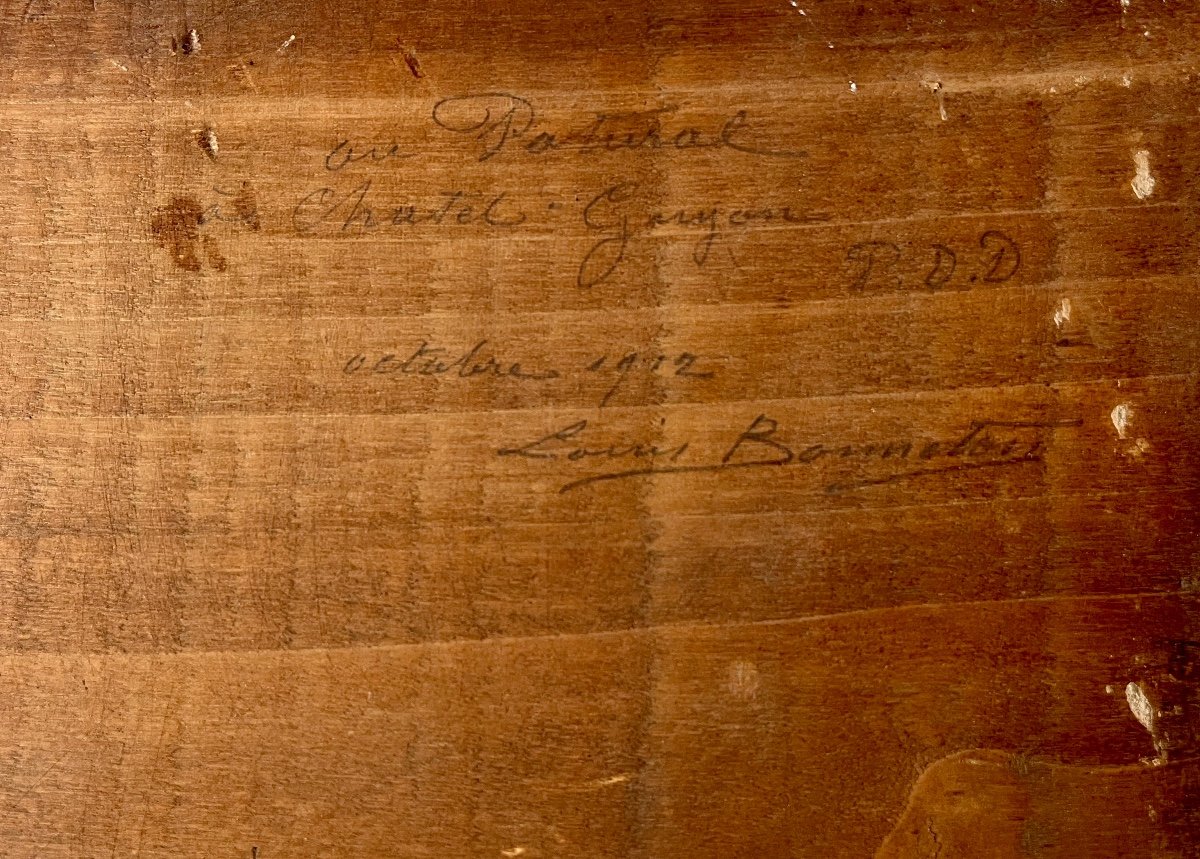 au Patural
à Chatel-Guyon
P.D.D
octobre 1912
Louis Bonneton